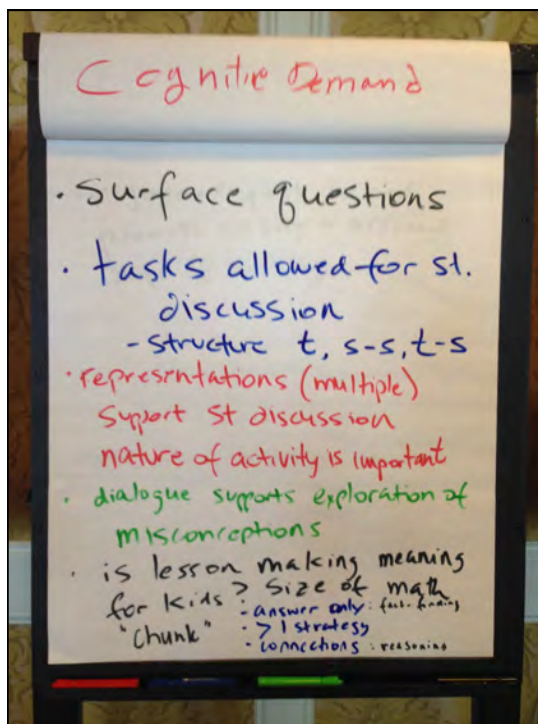 Cognitive Demand
· surface questions
· tasks allowed for st.
discussion
- structure t, s-s, t-s
· representations (multiple)
support st discussion
nature of activity is important
· dialogue supports exploration of
misconceptions
· is lesson making meaning
for kids? size of math
"chunk"
- answer only : fact-finding
· >1 strategy
- connections : reasoning